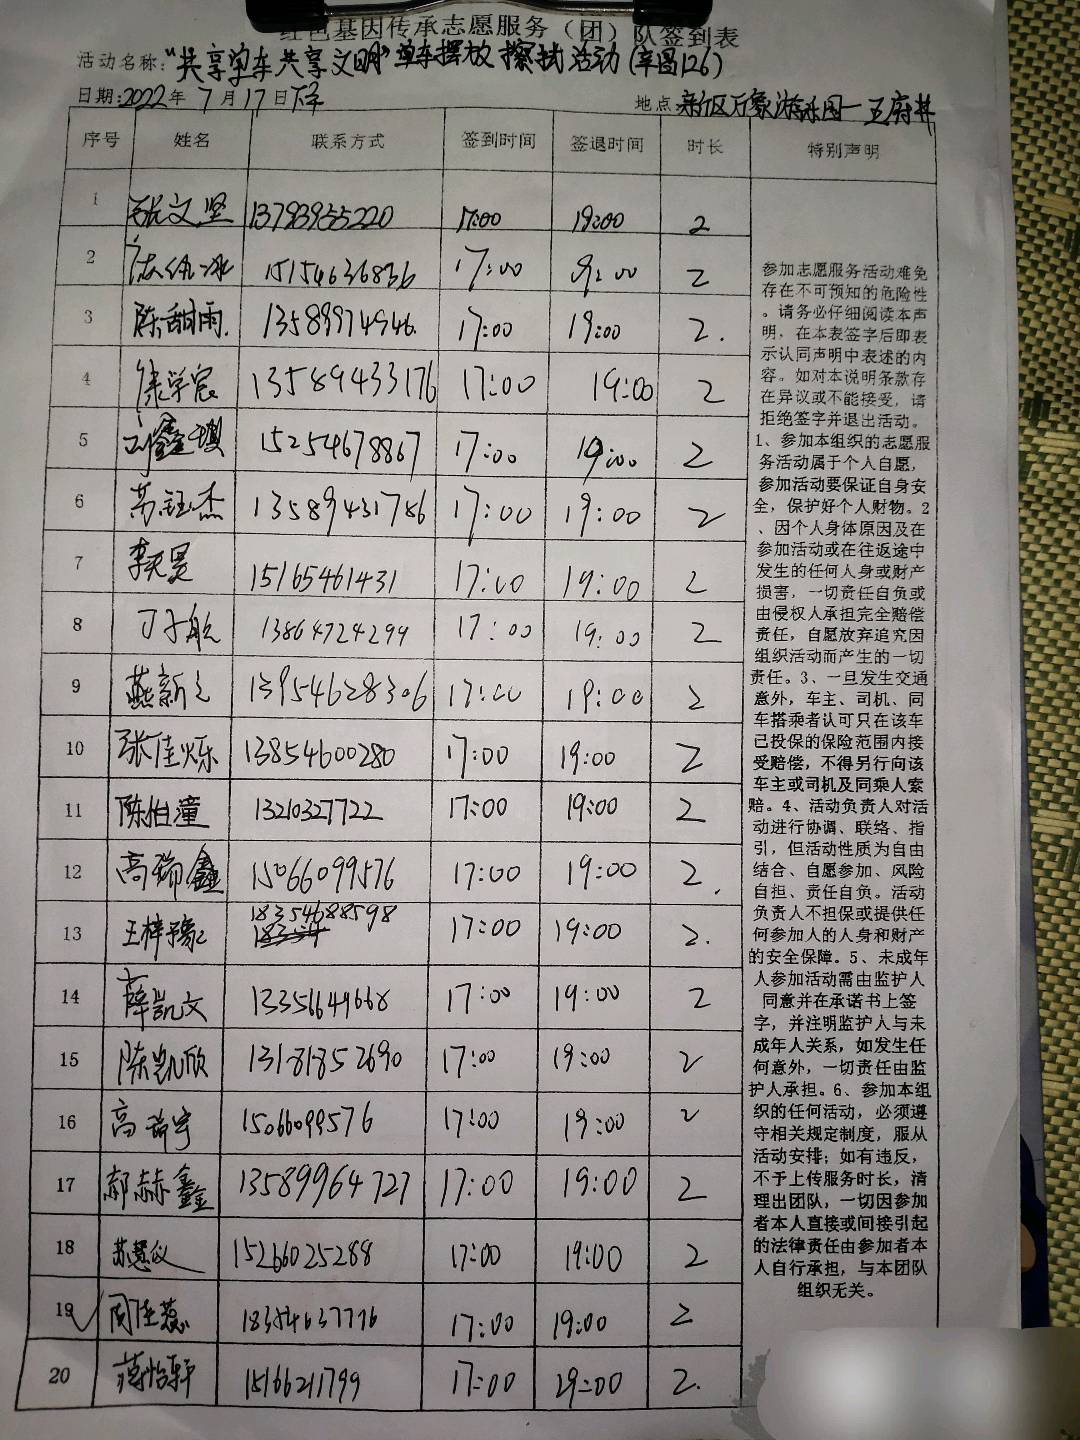 红色基因传承志愿服务（团）队签到表
活动名称："共享单车共享文明"单车摆放擦拭活动(辛昌126)
日期:2022年7月17日下午
地点:新区万象游乐园—王府井
序号 姓名 联系方式 签到时间 签退时间 时长 特别声明
1 张文坚 13793955220 17:00 19:00 2
2 15154636836 17:00 19:00 2
3 陈甜雨. 13589974946. 17:00 19:00 2.
4 徐学宸 13589433176 17:00 19:00 2
5 刘鑫琪 15254678867 17:00 19:00 2
6 苏钰杰 13589431786 17:00 19:00 2
7 李天昊 15165461431 17:00 19:00 2
8 丁子航 13864724299 17:00 19:00 2
9 燕新之 13954628306 17:00 19:00 2
10 张佳烁 13854600280 17:00 19:00 2
11 陈怡潼 13210327722 17:00 19:00 2
12 高瑞鑫 15066099576 17:00 19:00 2.
13 王梓豫 18354688598 17:00 19:00 2.
14 薛凯文 13356649668 17:00 19:00 2
15 陈凯欣 13181852690 17:00 19:00 2
16 高瑞宇 15066099576 17:00 19:00 2
17 郝赫鑫 13589964727 17:00 19:00 2
18 苏慧仪 15266025288 17:00 19:00 2
19 周佳蕊 18354637776 17:00 19:00 2
20 蒋怡轩 15166211799 17:00 19:00 2.
参加志愿服务活动难免
存在不可预知的危险性
。请务必仔细阅读本声
明，在本表签字后即表
示认同声明中表述的内
容。如对本说明条款存
在异议或不能接受，请
拒绝签字并退出活动。
1、参加本组织的志愿服
务活动属于个人自愿，
参加活动要保证自身安
全，保护好个人财物。2
、因个人身体原因及在
参加活动或在往返途中
发生的任何人身或财产
损害，一切责任自负或
由侵权人承担完全赔偿
责任，自愿放弃追究因
组织活动而产生的一切
责任。3、一旦发生交通
意外，车主、司机、同
车搭乘者认可只在该车
已投保的保险范围内接
受赔偿，不得另行向该
车主或司机及同乘人索
赔。4、活动负责人对活
动进行协调、联络、指
引，但活动性质为自由
结合、自愿参加、风险
自担、责任自负。活动
负责人不担保或提供任
何参加人的人身和财产
的安全保障。5、未成年
人参加活动需由监护人
同意并在承诺书上签
字，并注明监护人与未
成年人关系，如发生任
何意外，一切责任由监
护人承担。6、参加本组
织的任何活动，必须遵
守相关规定制度，服从
活动安排；如有违反，
不予上传服务时长，清
理出团队，一切因参加
者本人直接或间接引起
的法律责任由参加者本
人自行承担，与本团队
组织无关。